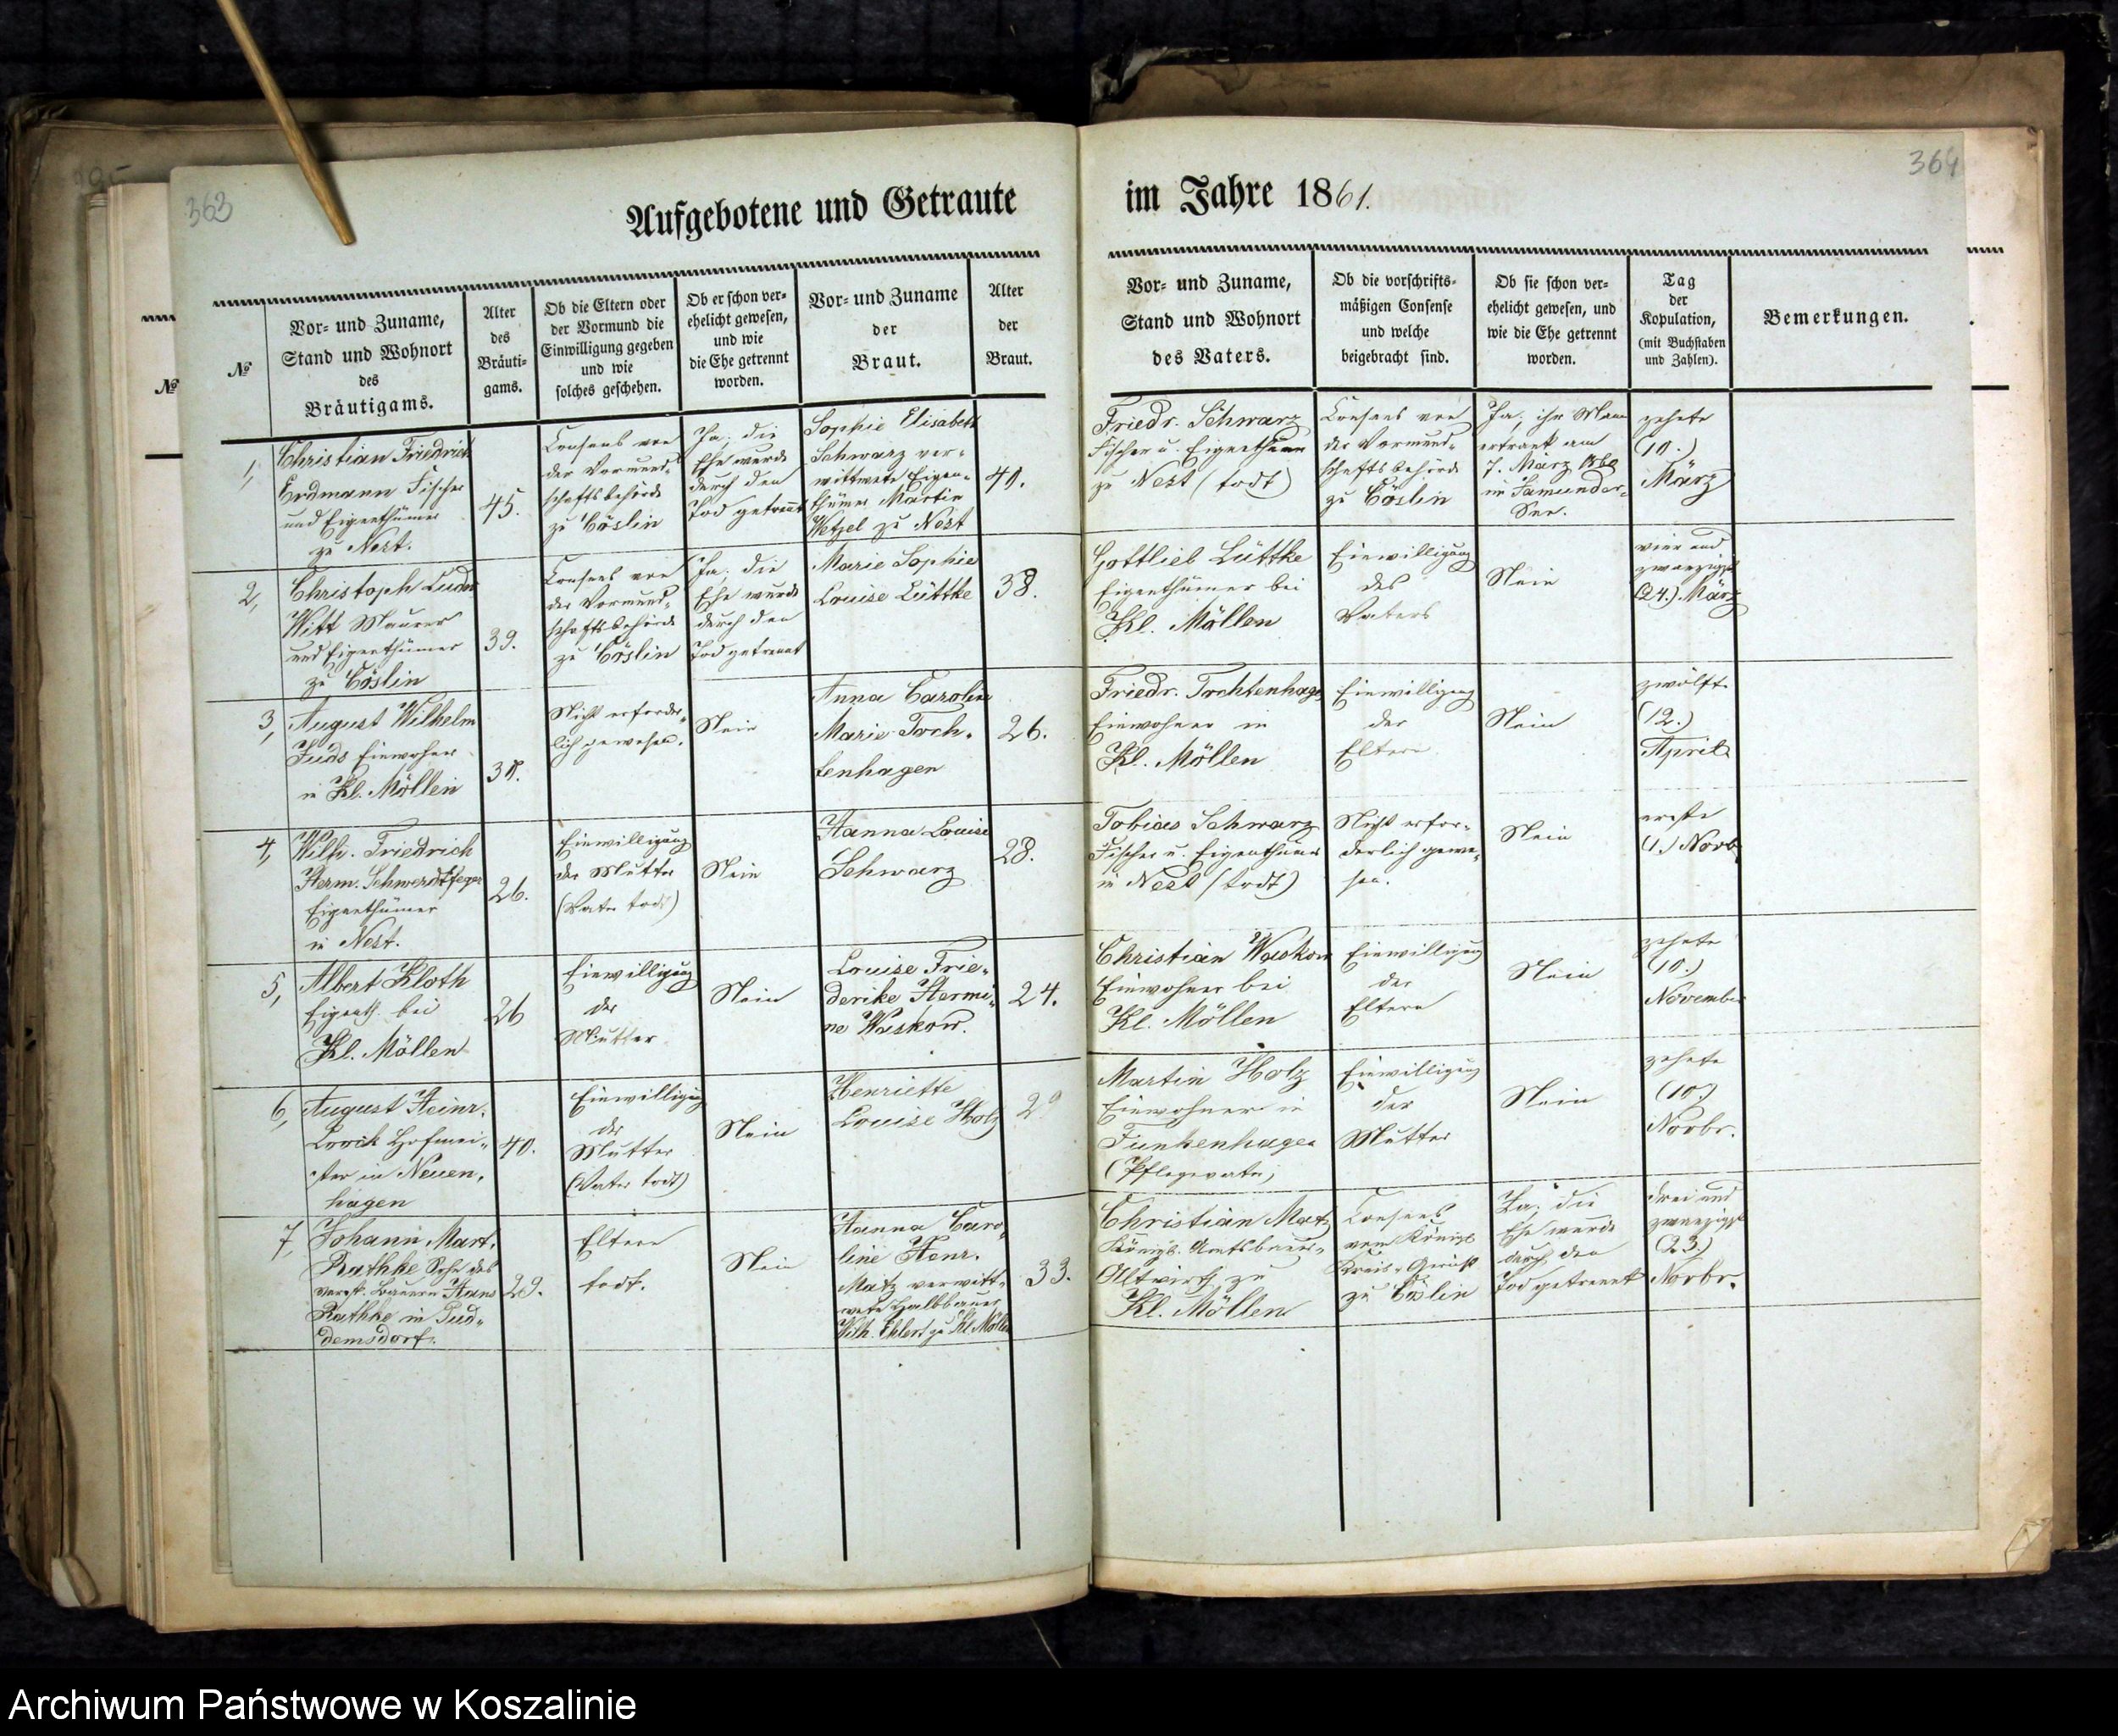 363
364
Aufgebotene und Getraute
im Jahre 1861.
№
№
Vor- und Zuname,
Stand und Wohnort
des
Bräutigams.
Alter
des
Bräuti-
gams.
Ob die Eltern oder
der Vormund die
Einwilligung gegeben
und wie
solches geschehen.
Ob er schon ver-
ehelicht gewesen,
und wie
die Ehe getrennt
worden.
Vor- und Zuname
der
Braut.
Alter
der
Braut.
Vor- und Zuname,
Stand und Wohnort
des Vaters.
Ob die vorschrifts-
mäßigen Consense
und welche
beigebracht sind.
Ob sie schon ver-
ehelicht gewesen, und
wie die Ehe getrennt
worden.
Tag
der
Kopulation,
(mit Buchstaben
und Zahlen).
Bemerkungen.
1,
Christian Friedrich
Erdmann Fischer
und Eigenthümer
zu Nest.
45.
Consens von
der Vormund-
schaftsbehörde
zu Cöslin
Ja, die
Ehe wurde
durch den
Tod getrennt
Sophie Elisabeth
Schwarz ver-
wittwete Eigen-
thümer Martin
Wetzel zu Nest
41.
Friedr. Schwarz
Fischer u. Eigenthümer
zu Nest (todt)
Consens von
der Vormund-
schaftsbehörde
zu Cöslin
Ja, ihr Mann
ertrank am
7. März 1860
im Jamunder-
See.
zehnte
(10.)
März
2,
Christoph Ludw
Witt Maurer
und Eigenthümer
zu Cöslin
39.
Consens von
der Vormund-
schaftsbehörde
zu Cöslin
Ja, die
Ehe wurde
durch den
Tod getrennt
Marie Sophie
Louise Lüttke
38.
Gottlieb Lüttke
Eigenthümer bei
Kl. Möllen
Einwilligung
des
Vaters
Nein
vier und
zwanzigste
(24.) März
3,
August Wilhelm
Fuds Einwohner
in Kl. Möllen
Nicht erforder-
lich gewesen.
Nein
Anna Caroline
Marie Toch-
tenhagen
26.
Friedr. Tochtenhagen
Einwohner in
Kl. Möllen
Einwilligung
der
Eltern
Nein
zwölfte
(12.)
April
4,
Wilh. Friedrich
Herm. Schwerdtfeger
Eigenthümer
in Nest.
26.
Einwilligung
der Mutter
(Vater todt)
Nein
Hanna Louise
Schwarz
28.
Tobias Schwarz
Fischer u. Eigenthümer
in Nest (todt)
Nicht erfor-
derlich gewe-
sen.
Nein
erste
(1.) Novb
5,
Albert Kloth
Eigenth. bei
Kl. Möllen
26
Einwilligung
der
Mutter
Nein
Louise Frie-
derike Hermi-
ne Waskow.
24.
Christian Waskow
Einwohner bei
Kl. Möllen
Einwilligung
der
Eltern
Nein
zehnte
(10.)
November
6,
August Heinr.
Hofmei-
ster in Neuen-
hagen
40.
Einwilligung
der
Mutter
(Vater todt)
Nein
Henriette
Louise Holz
29
Martin Holz
Einwohner in
Funkenhagen
(Pflegevater)
Einwilligung
der
Mutter
Nein
zehnte
(10.)
Novbr.
7,
Johann Mart.
Rathke Sohn des
verst. Bauern Hans
Rathke in Pud-
demsdorf.
29.
Eltern
todt.
Nein
Hanna Caro-
line Henr.
Matz verwitt-
wete Halbbauer
Wilh. Ehlert zu Kl. Möllen
33.
Christian Matz
Königl. Amtsbauer-
Altwirth zu
Kl. Möllen
Consens
vom Königl
Kreis-Gericht
zu Cöslin
Ja, die
Ehe wurde
durch den
Tod getrennt
drei und
zwanzigste
(23.)
Novbr.
Archiwum Państwowe w Koszalinie